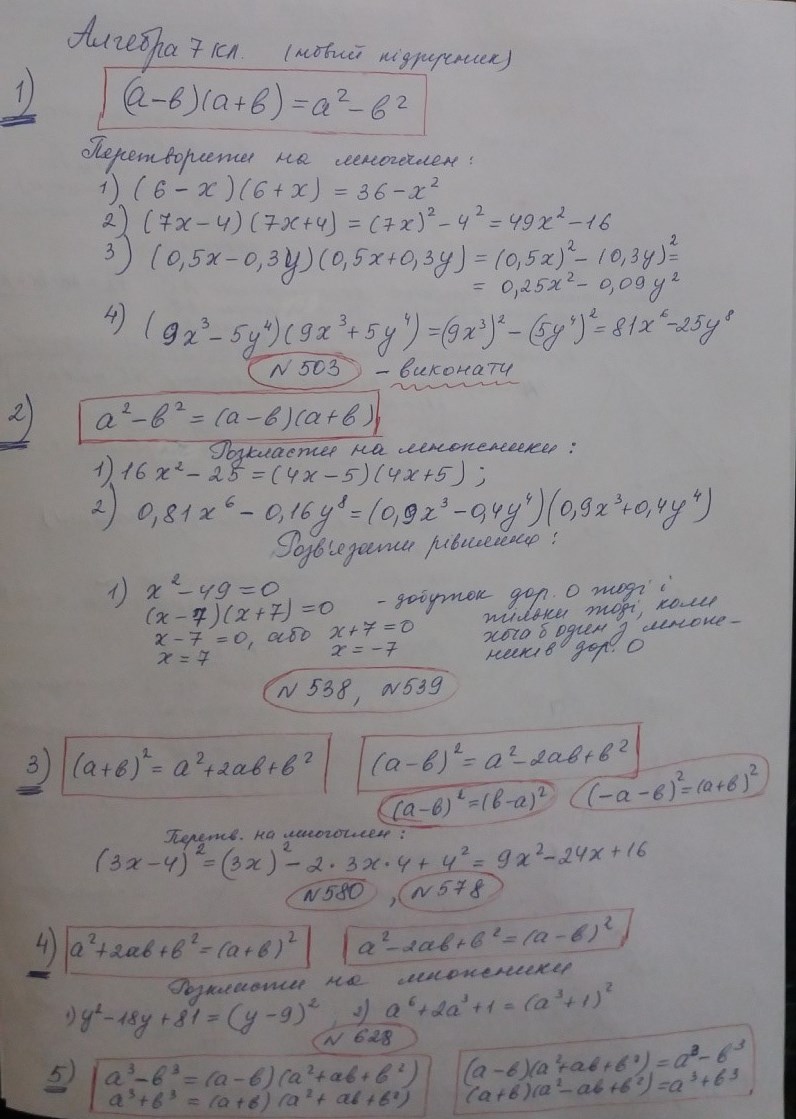 Алгебра 7 кл. (новий підручник)
1) (а-в)(а+в) = а²-в²
Перетворити на многочлен:
1) (6-x)(6+x) = 36-x²
2) (7x-4)(7x+4) = (7x)²-4² = 49x²-16
3) (0,5x-0,3y)(0,5x+0,3y) = (0,5x)²-(0,3y)² =
= 0,25x²-0,09y²
4) (9x³-5y⁴)(9x³+5y⁴) = (9x³)²-(5y⁴)² = 81x⁶-25y⁸
N 503 - виконати
2) а²-в² = (а-в)(а+в)
Розкласти на множники:
1) 16x²-25 = (4x-5)(4x+5);
2) 0,81x⁶-0,16y⁸ = (0,9x³-0,4y⁴)(0,9x³+0,4y⁴)
Розв'язати рівняння:
1) x²-49=0
(x-7)(x+7)=0 - добуток дор. 0 тоді і
x-7=0, або x+7=0 тільки тоді, коли
x=7 x=-7 хоча б один з множ-
ників дор. 0
N 538, N 539
3) (а+в)² = а²+2ав+в² (а-в)² = а²-2ав+в²
(а-в)²=(в-а)² (-а-в)²=(а+в)²
Перетв. на многочлен:
(3x-4)² = (3x)²-2·3x·4+4² = 9x²-24x+16
N 580, N 578
4) а²+2ав+в² = (а+в)² а²-2ав+в² = (а-в)²
Розкласти на множники
1) y²-18y+81 = (y-9)² 2) а⁶+2а³+1 = (а³+1)²
N 628
5) а³-в³ = (а-в)(а²+ав+в²) (а-в)(а²+ав+в²) = а³-в³
а³+в³ = (а+в)(а²+ав+в²) (а+в)(а²-ав+в²) = а³+в³